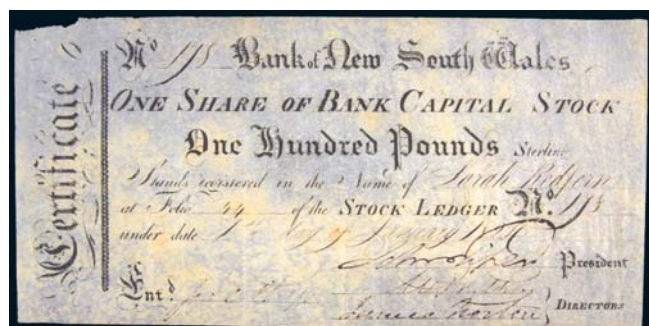 Certificate
No 198 Bank of New South Wales
ONE SHARE OF BANK CAPITAL STOCK
One Hundred Pounds Sterling
Stands registered in the Name of Sarah Redfern
at Folio 44 of the STOCK LEDGER No. 198
under date day of January
President
Entd.
DIRECTORS